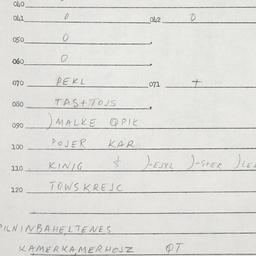 040
041 0 042 0
050 0
060 0
070 PEKL 071 +
080 TAS+TOJS
090 )MALKE QPIK
100 POJER KAR
110 KINIG )-EJKL )-STER
120 TOWSKREJC
KAMERKAMERHOJZ QT